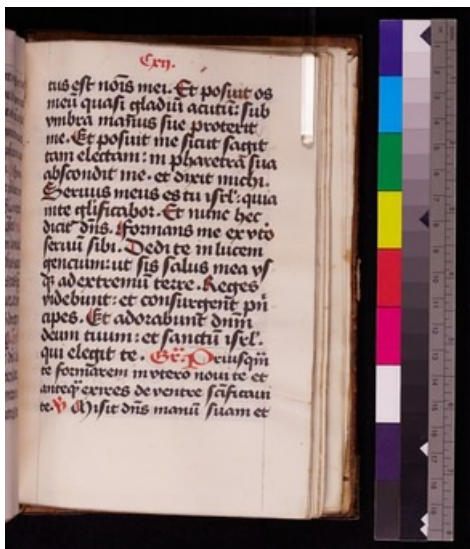 Cxii.
tus est nois mei. Et posuit os
meū quasi gladiū acutū: sub
vmbra manus sue protexit
me. Et posuit me sicut sagit
tam electam: in pharetra sua
abscondit me. et dixit michi.
Seruus meus es tu isrl: quia
inte glificabor. Et nunc hec
dicit dn̄s. formans me ex vto
seruū sibi. Dedi te in lucem
gencium: ut sis salus mea vs
q̄ ad extremū terre. Reges
videbunt: et consurgent pn̄
apes. Et adorabunt dnm̄
deum tuum: et sanctū isrl.
qui elegit te. Gr̄. Priusqm̄
te formarem in vtero noui te et
anteq̄ exires de ventre sc̄ificaui
te. V̄ Misit dn̄s manū suam et